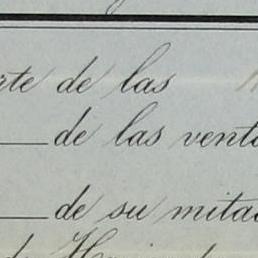 rte de las
de las venta
de su mitad
de